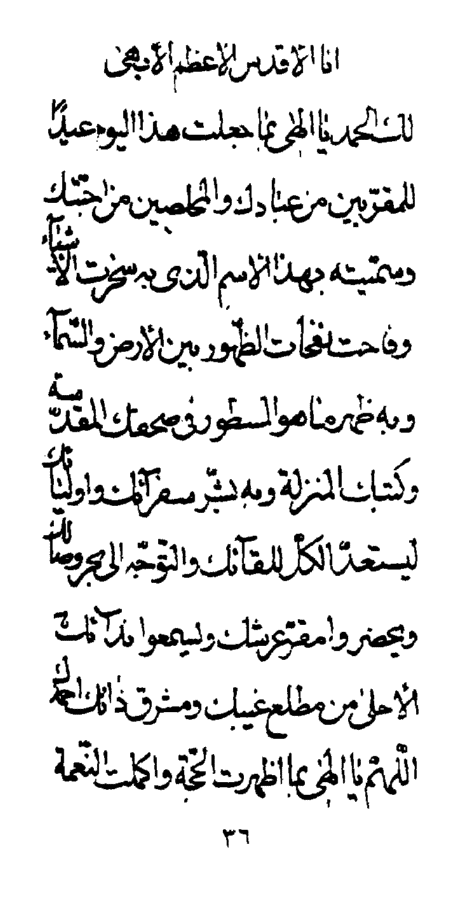 انا الاقدس الاعظم الأبهى
لك الحمد يا الهى بما جعلت هذا اليوم عيدًا
للمقرّبين من عبادك والمخلصين من احبّتك
وسمّيته بهذا الاسم الّذى به سخّرت الأشيآء
وفاحت نفحات الظّهور بين الأرض والسّمآء
وبه ظهر ما هو المسطور فى صحفك المقدّسة
وكتبك المنزلة وبه بشّر سفرآئك واوليائك
ليستعدّ الكلّ للقآئك والتّوجّه الى بحر وصالك
ويحضروا مقرّ عرشك وليسمعوا ندآئك
الأحلى من مطلع غيبك ومشرق ذاتك احمدك
اللّهمّ يا الهى بما اظهرت الحجّة واكملت النّعمة
٣٦